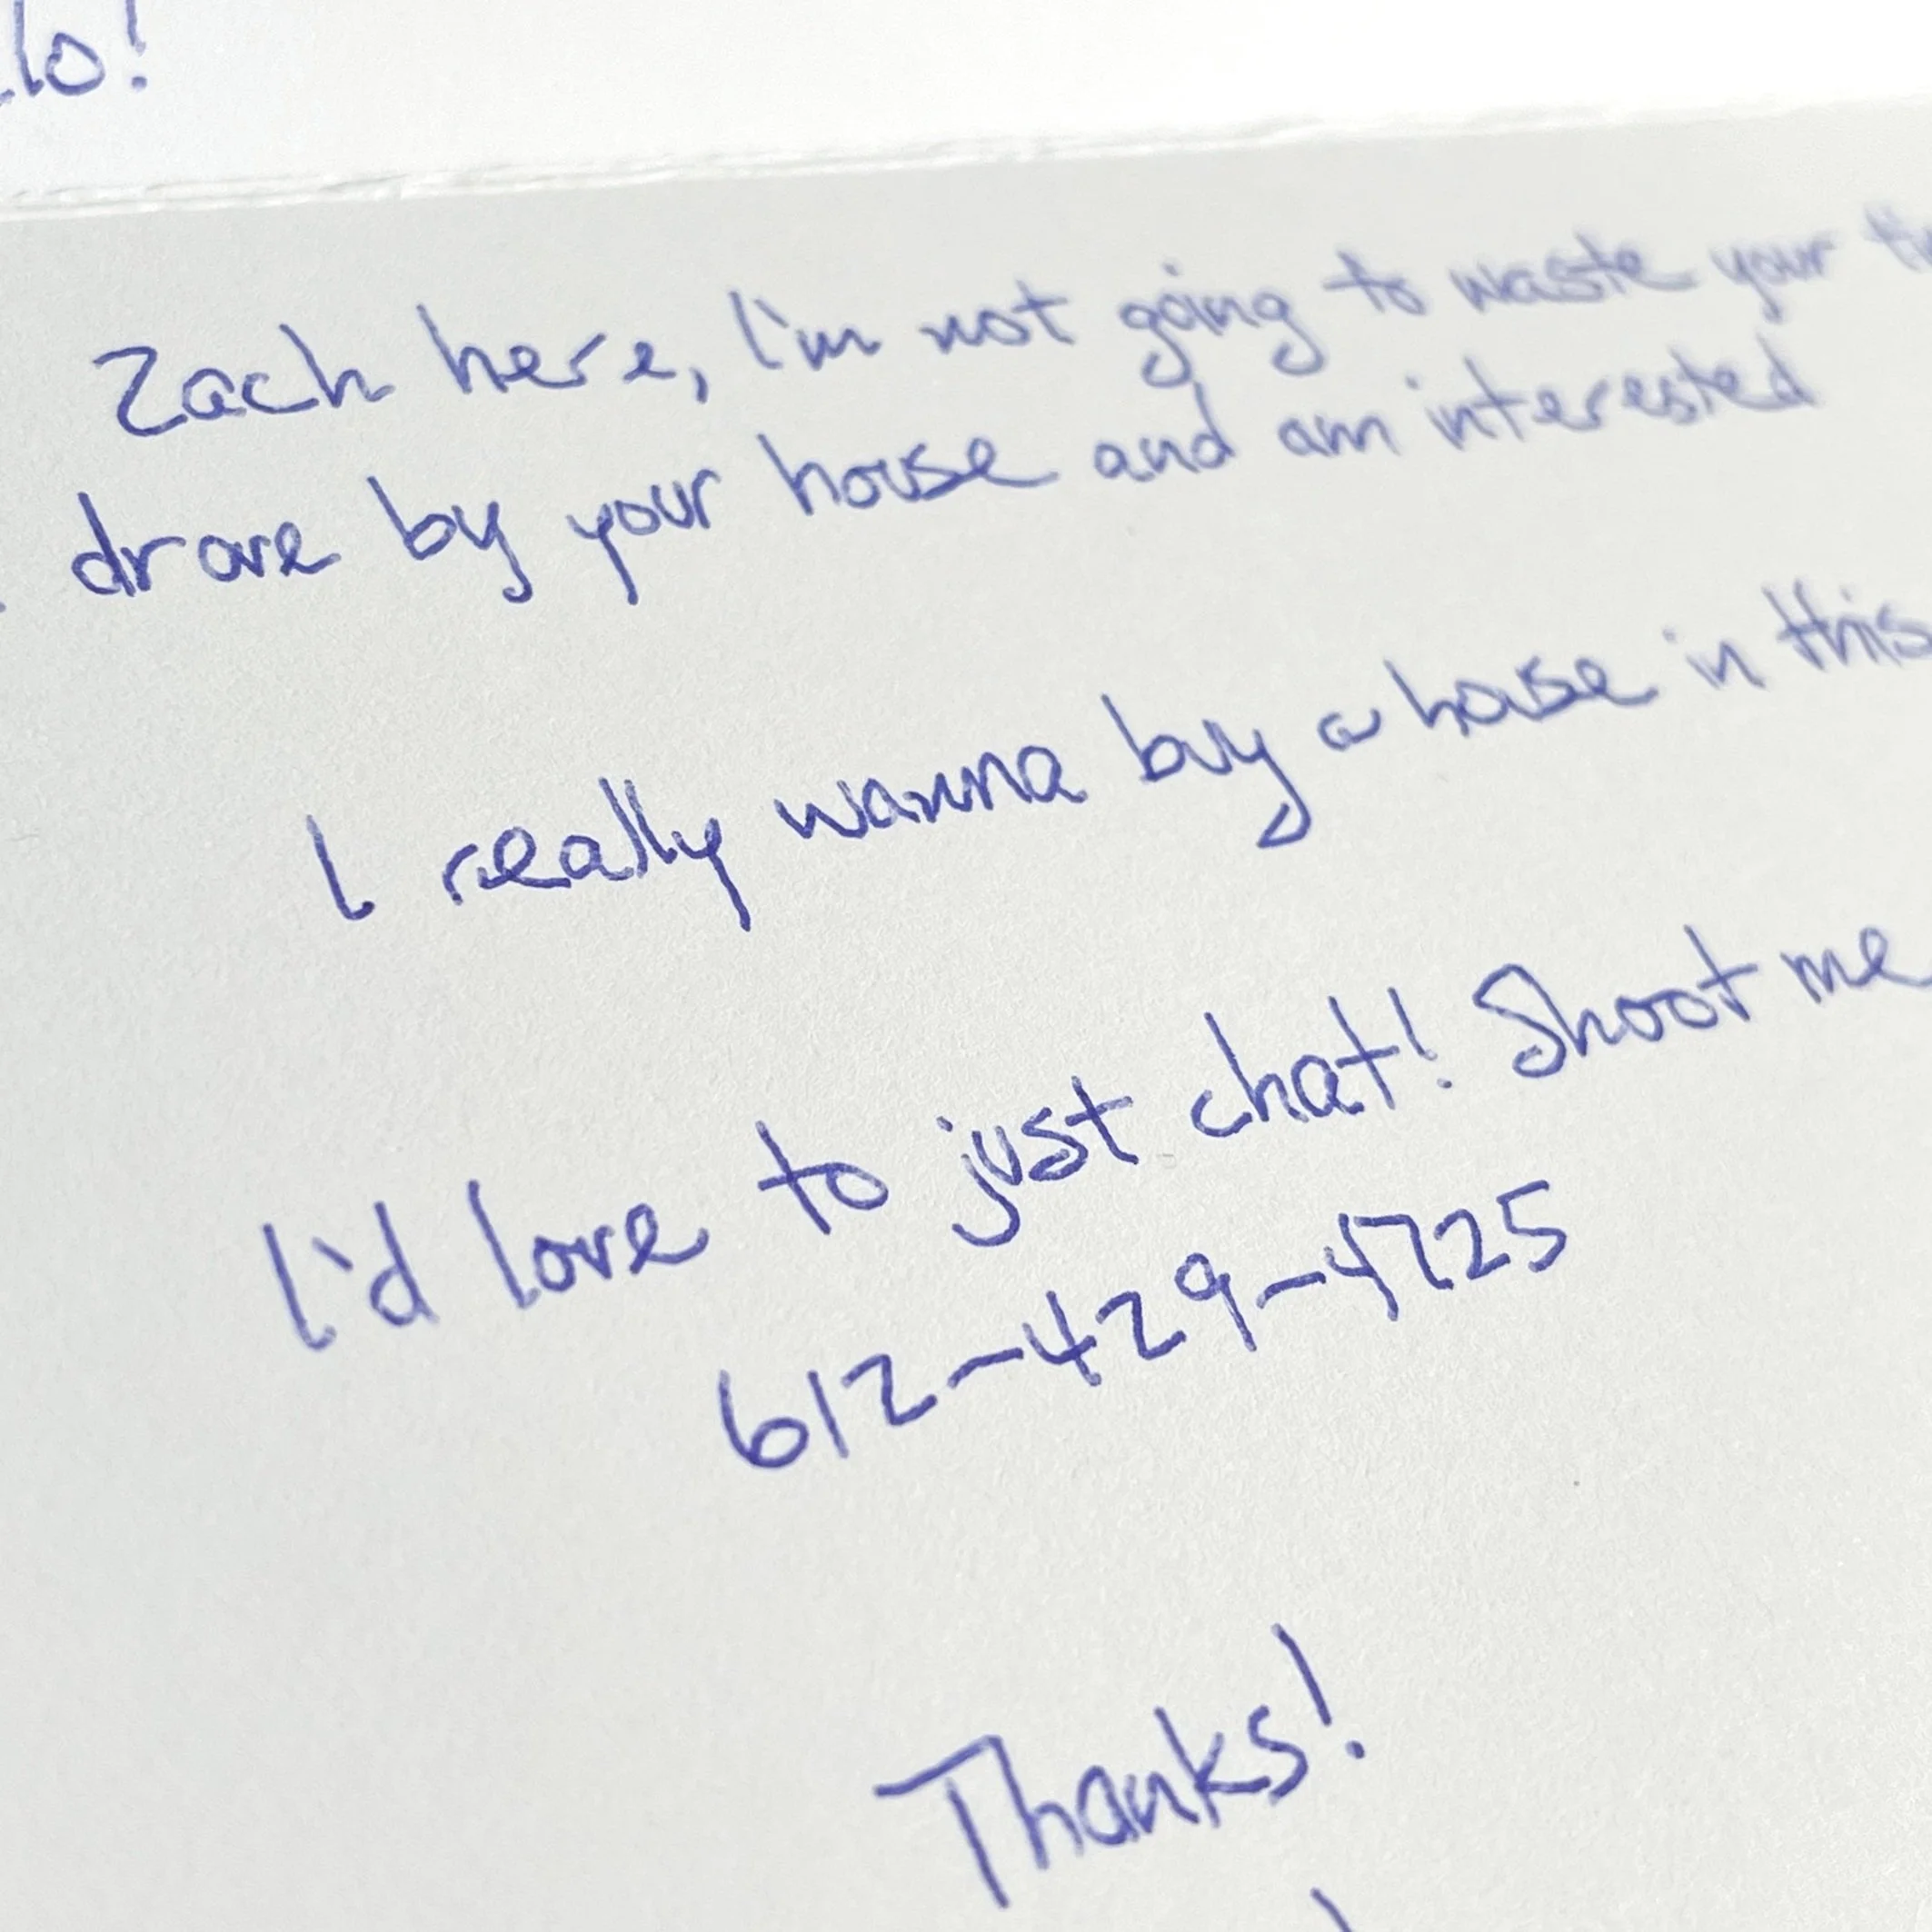 lo!
Zach here, I'm not going to waste your
drove by your house and am interested
I really wanna buy a house in this
I'd love to just chat! Shoot me
612-429-4725
Thanks!